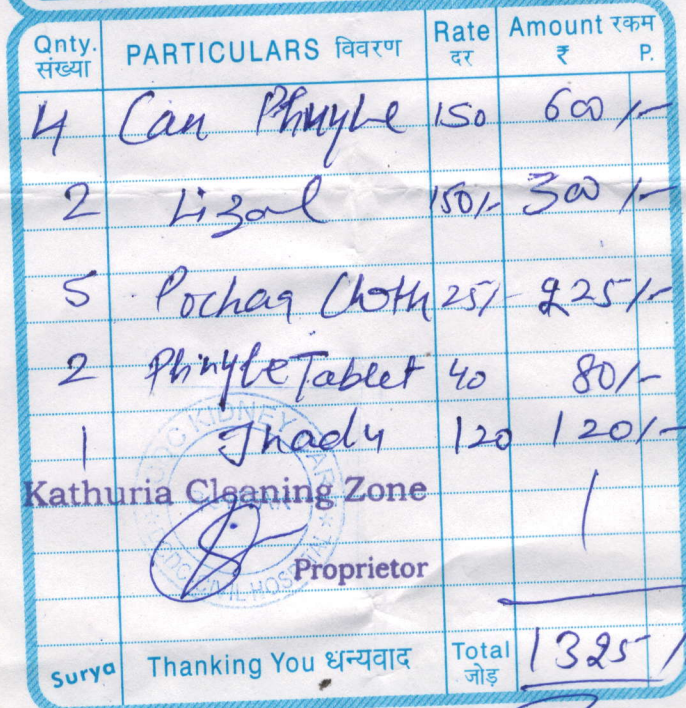 Qnty. PARTICULARS विवरण Rate Amount रकम
संख्या दर ₹ P.
4 Can Phnyle 150 600/-
2 Lizol 150/- 300/-
5 Pochaa Cloth 25/- 225/-
2 Phinyle Tablet 40 80/-
1 Jhadu 120 120/-
Kathuria Cleaning Zone
Proprietor
Surya Thanking You धन्यवाद Total 1325/
जोड़